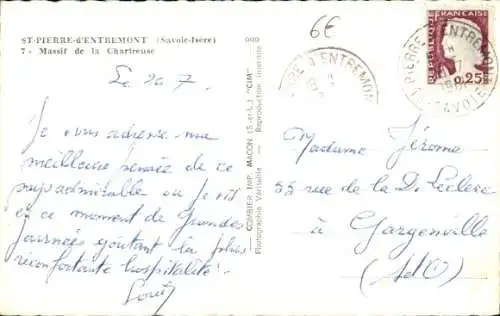 ST-PIERRE-d'ENTREMONT (Savoie-Isère)
7 - Massif de la Chartreuse
6€
Le 20 7.
Je vous adresse ma
meilleure pensée de ce
pays admirable où je vis
en ce moment de Grandes
journées goûtant la plus
réconfortante hospitalité.
COMBIER IMP. MACON (S.-et-L.) "CIM"
Photographie Véritable - Reproduction Interdite
ST PIERRE D'ENTREMONT
SAVOIE
REPUBLIQUE FRANÇAISE
0,25
Madame Jérome
55 rue de la D. Leclerc
à Gargenville
(S et O)